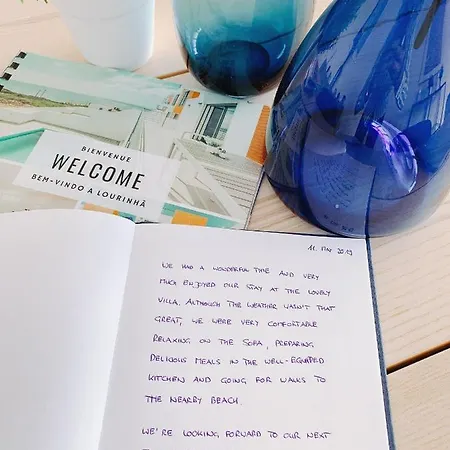 BIENVENUE
WELCOME
BEM-VINDO A LOURINHÃ
11. MAI 2019
WE HAD A WONDERFUL TIME AND VERY
MUCH ENJOYED OUR STAY AT THE LOVELY
VILLA. ALTHOUGH THE WEATHER WASN'T THAT
GREAT, WE WERE VERY COMFORTABLE
RELAXING ON THE SOFA, PREPARING
DELICIOUS MEALS IN THE WELL-EQUIPPED
KITCHEN AND GOING FOR WALKS TO
THE NEARBY BEACH.
WE'RE LOOKING FORWARD TO OUR NEXT